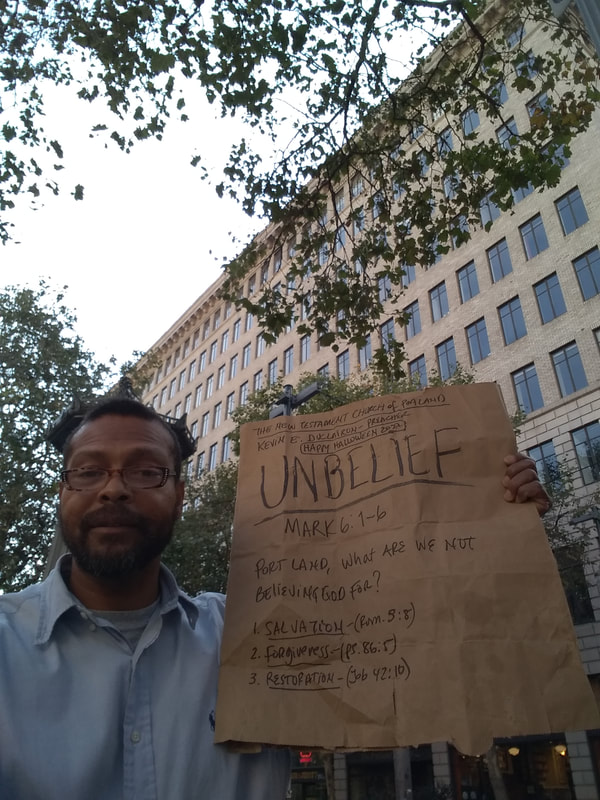 THE NEW TESTAMENT CHURCH of PORTLAND
KEVIN E. PREACHER
(HAPPY HALLOWEEN 2022)
UNBELIEF
MARK 6:1-6
PORTLAND, WHAT ARE WE NOT
BELIEVING GOD FOR?
1. SALVATION - (Rom. 5:8)
2. FORGIVENESS - (PS. 86:5)
3. RESTORATION - (Job 42:10)